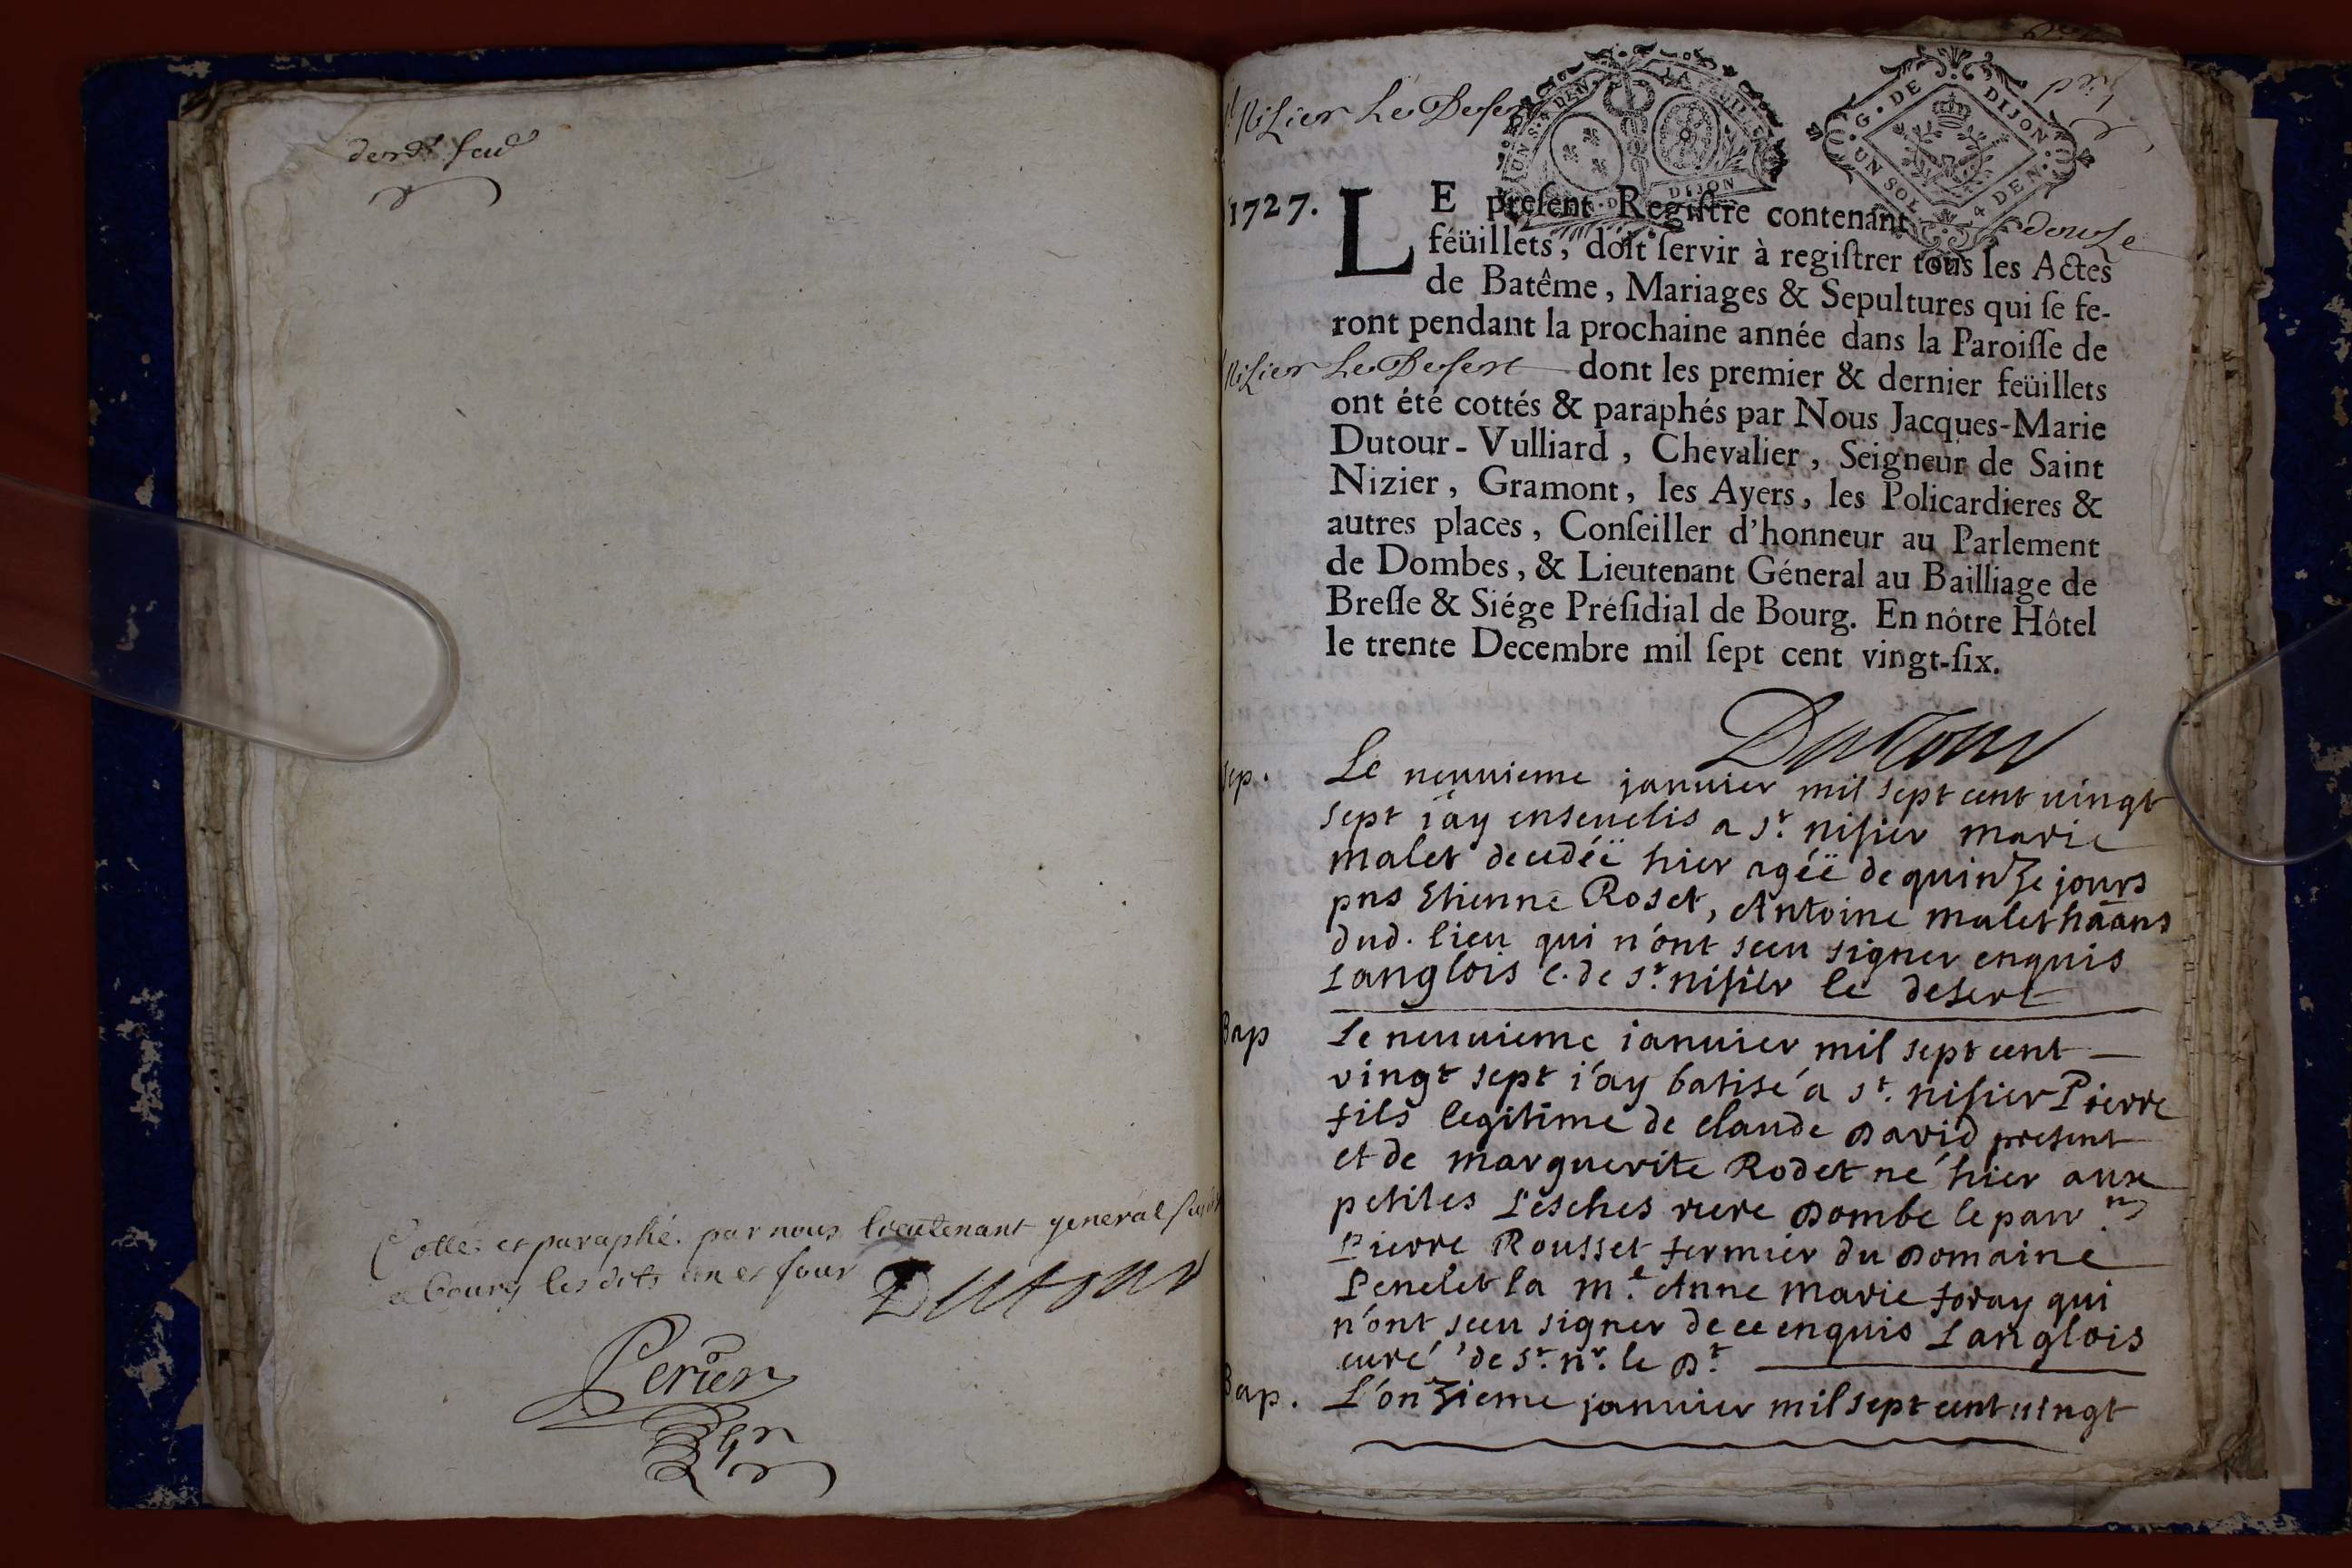 Cottés et paraphé par nous lieutenant general
a bourg les dits an et jour Dutour
Perier
St Nisier Le Desert
UN S. DEN LA FEUILLE
DIJON
G. DE DIJON
UN SOL 4 DEN.
1727. LE preſent Regiſtre contenant douze
féüillets, doit ſervir à regiſtrer tous les Actes
de Batême, Mariages & Sepultures qui ſe fe-
ront pendant la prochaine année dans la Paroiſſe de
Nisier Le Desert dont les premier & dernier feüillets
ont été cottés & paraphés par Nous Jacques-Marie
Dutour-Vulliard, Chevalier, Seigneur de Saint
Nizier, Gramont, les Ayers, les Policardieres &
autres places, Conſeiller d'honneur au Parlement
de Dombes, & Lieutenant Géneral au Bailliage de
Breſſe & Siége Préſidial de Bourg. En nôtre Hôtel
le trente Decembre mil ſept cent vingt-ſix.
Dutour
Sep. Le neuuieme januier mil sept cent uingt
sept i'ay enseuelis a st. nisier marie
malet decedéë hier agéë de quinze jours
pns Etienne Roset, Antoine malet hâans
dud. lieu qui n'ont sceu signer enquis
Langlois c. de st. nisier le desert
Bap Le neuuieme ianuier mil sept cent
vingt sept i'ay batisé a st. nisier Pierre
fils legitime de claude David present
et de marguerite Rodet né hier aux
petites Lesches riere Dombe le parr.n
Pierre Rousset fermier du Domaine
Penelet la m.e Anne Marie foray qui
n'ont sceu signer de ce enquis Langlois
curé de st. nr. le Dt.
Bap. L'onzieme januier mil sept cent uingt